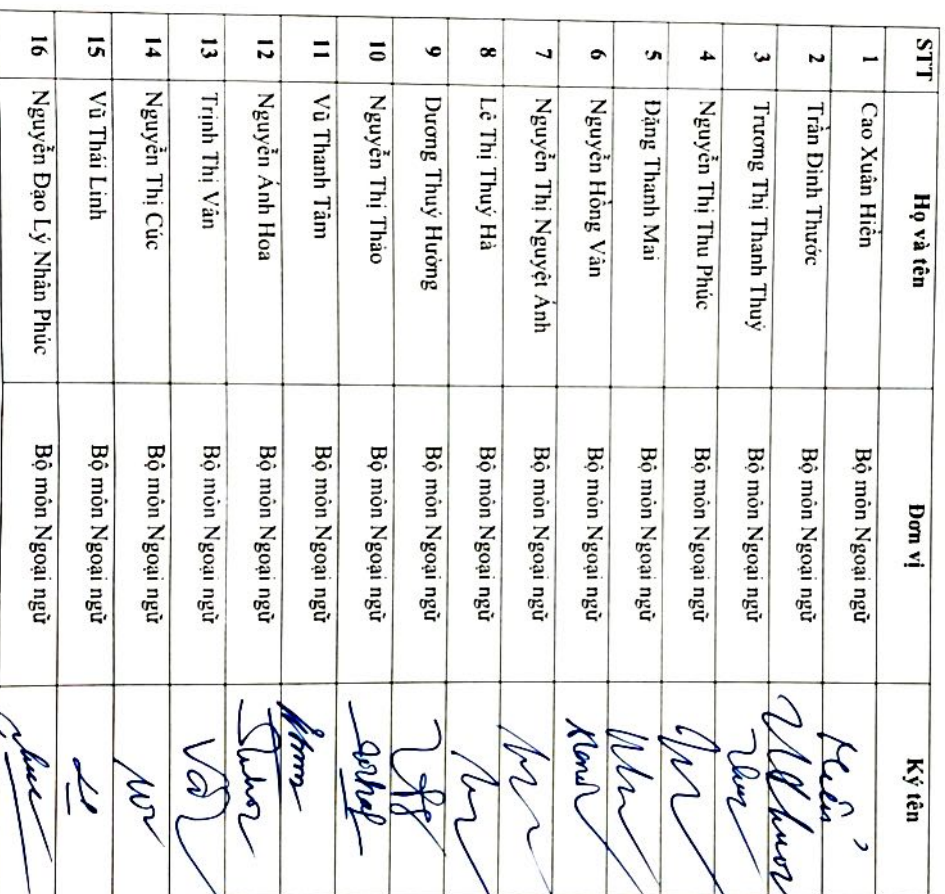 STT Họ và tên Đơn vị Ký tên
1 Cao Xuân Hiền Bộ môn Ngoại ngữ
2 Trần Đình Thước Bộ môn Ngoại ngữ
3 Trương Thị Thanh Thuý Bộ môn Ngoại ngữ
4 Nguyễn Thị Thu Phúc Bộ môn Ngoại ngữ
5 Đặng Thanh Mai Bộ môn Ngoại ngữ
6 Nguyễn Hồng Vân Bộ môn Ngoại ngữ
7 Nguyễn Thị Nguyệt Ánh Bộ môn Ngoại ngữ
8 Lê Thị Thuý Hà Bộ môn Ngoại ngữ
9 Dương Thuý Hường Bộ môn Ngoại ngữ
10 Nguyễn Thị Thảo Bộ môn Ngoại ngữ
11 Vũ Thanh Tâm Bộ môn Ngoại ngữ
12 Nguyễn Ánh Hoa Bộ môn Ngoại ngữ
13 Trịnh Thị Vân Bộ môn Ngoại ngữ
14 Nguyễn Thị Cúc Bộ môn Ngoại ngữ
15 Vũ Thái Linh Bộ môn Ngoại ngữ
16 Nguyễn Đạo Lý Nhân Phúc Bộ môn Ngoại ngữ